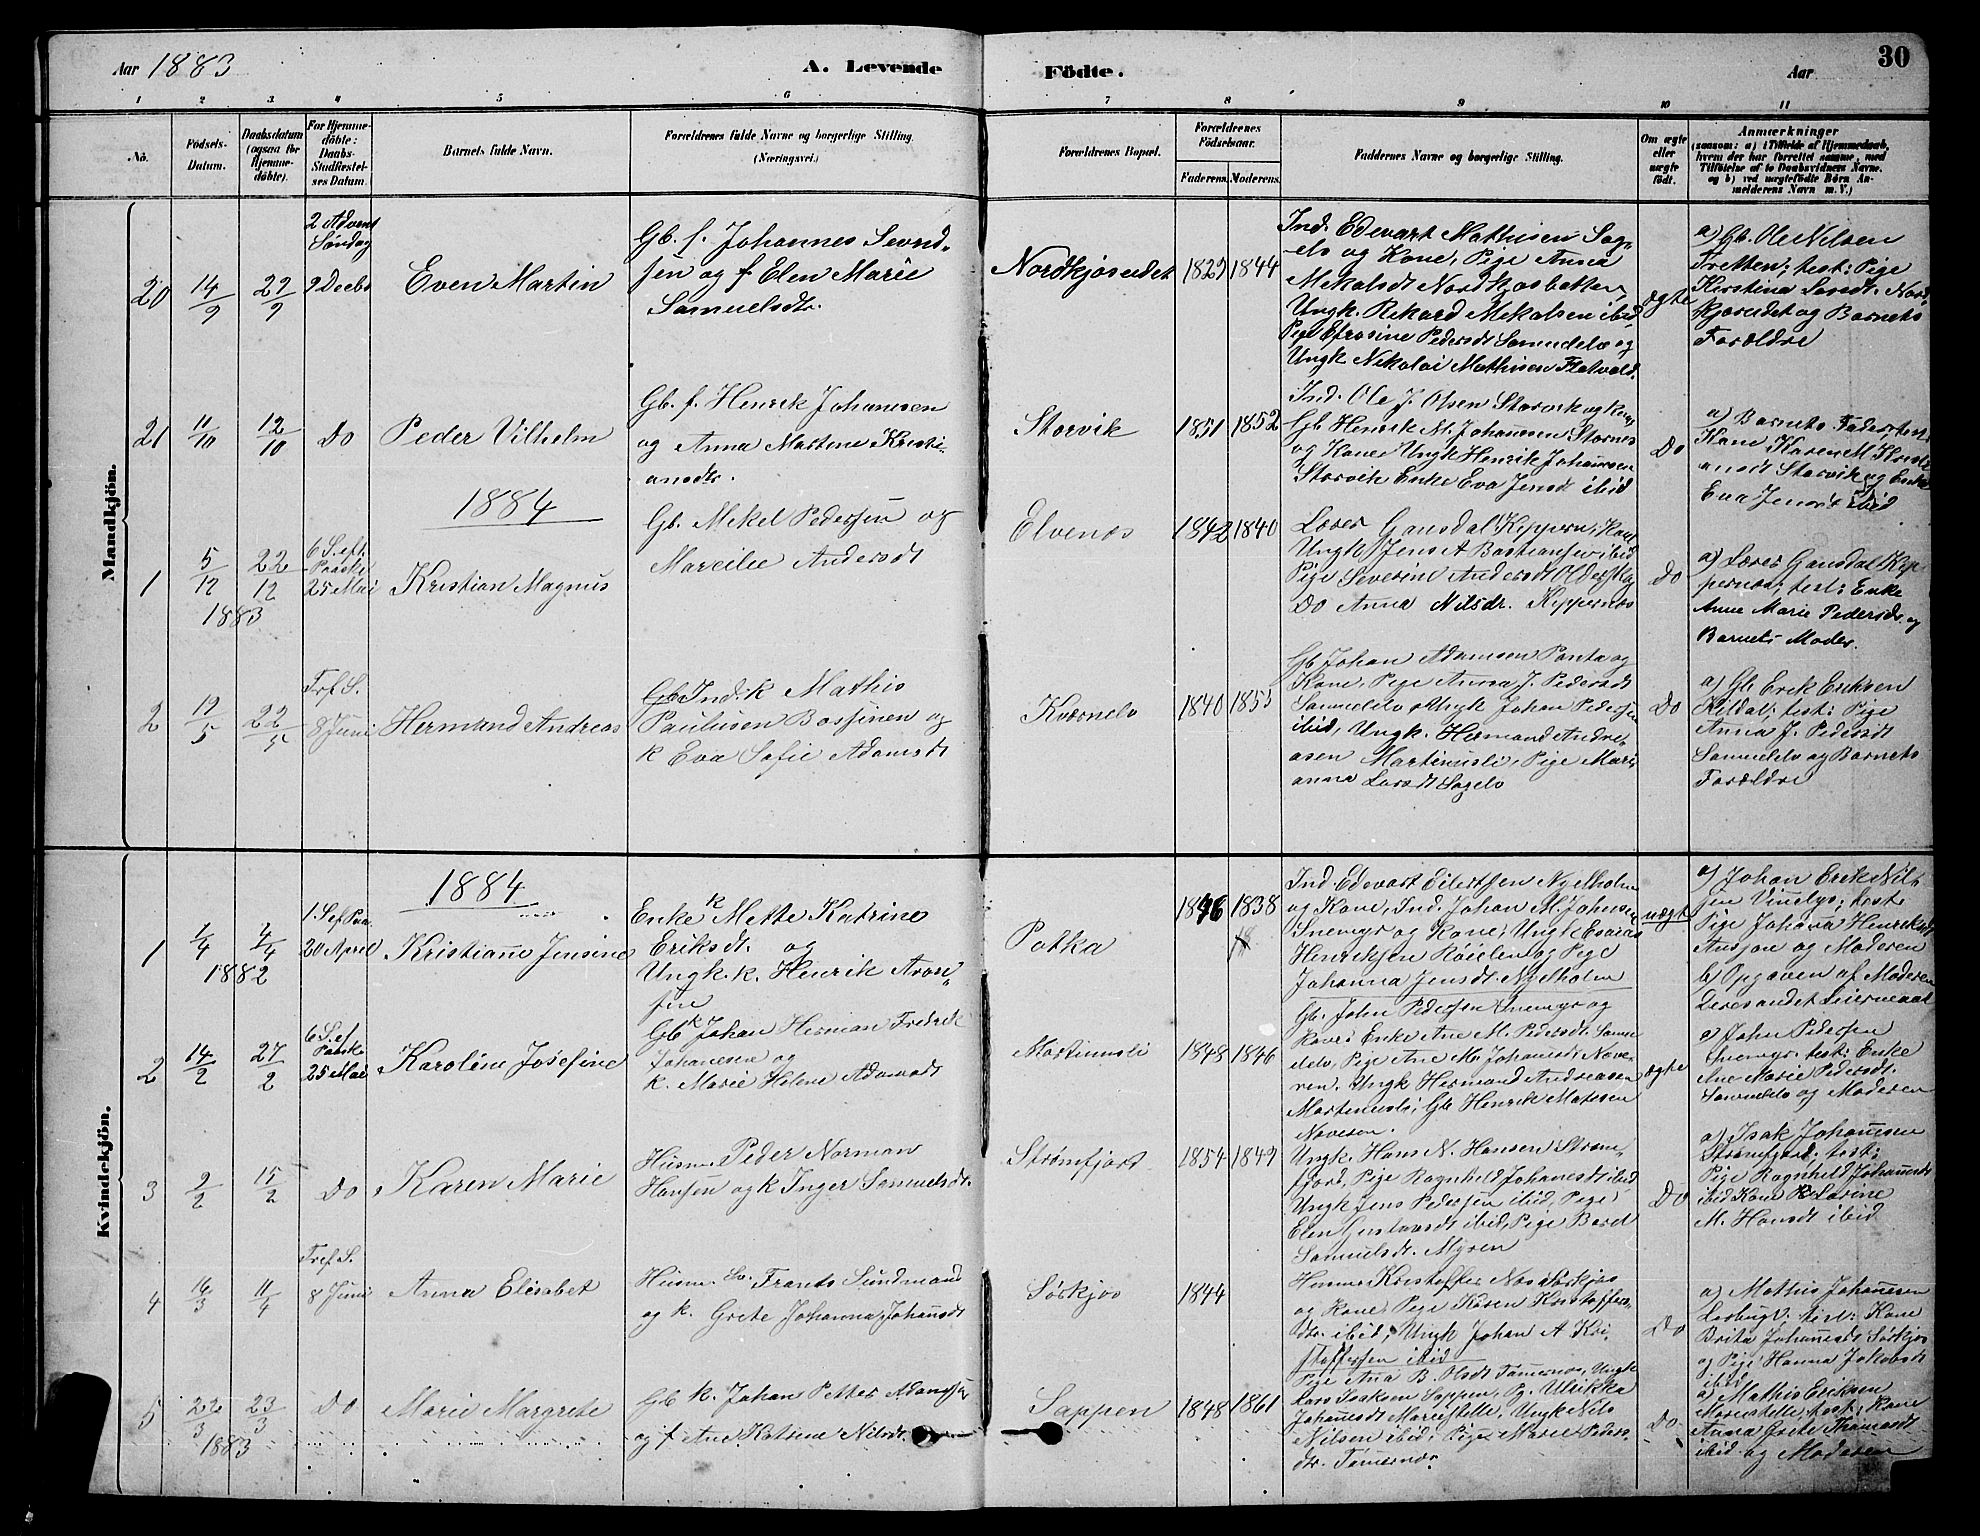 Aar 1883
A. Levende
Födte.
Aar
30
1 2 3. 4 5 6 7 8 9 10 11
No.
Födsels-
Datum.
Daabsdatum
(ogsaa for
Hjemme-
döbte).
For Hjemme-
döbte:
Daabs-
Stadfæstel-
ses Datum.
Barnets fulde Navn.
Forældrenes fulde Navne og borgerlige Stilling.
(Næringsvei.)
Forældrenes Bopæl.
Forældrenes
Födselsaar.
Faderens. Moderens.
Faddernes Navne og borgerlige Stilling.
Om ægte
eller
uægte
födt.
Anmærkninger
(saasom: a) i Tilfælde af Hjemmedaab,
hvem der har forrettet samme, med
Tilföielse af to Daabsvidners Navne.
og b) ved uægtefödte Börn An-
melderens Navn m. V.)
Mandkjön.
20
14/9
29/9
2 Advent
Søndag
9 Decbr
Even Martin
Gb. f. Johannes Sevrid-
sen og f Elen Marie
Samuelsdtr.
Nordkjoseidet
1829 1844
Ind. Edevart Mathisen Sag-
elv og Kone, Pige Anna
Mikalsdt Nordkjosbotten,
Ungk. Rikard Mikalsen ibid,
Pige Efrosine Pedersdt Samuelelv og
Ungk Nikolai Mathisen Flatvold.
ægte
a) Gb. Ole Nilsen
Tretten; test: Pige
Kirstina Larsdt. Nord-
kjoseidet og Barnets
Forældre
21
11/10
12/10
Do
Peder Vilhelm
Gb. f. Henrik Johannesen
og Anna Martine Kristi-
ansdtr.
Storvik
1851 1852
Ind. Ole J. Olsen Storvik og Kone,
Gb Henrik M. Johannesen Stornes
og Kone Ungk Henrik Johannesen
Storvik Enke Eva Jensdt ibid
Do
a) Barnets Fader, test:
Kone Karen M. Kristi-
ansdt Storvik og Enke
Eva Jensdt ibid
1884
1
5/12
1883
22/12
6 S. eft.
Paaske
25 Mai
Kristian Magnus
Gb. Mikel Pedersen og
Marcilie Andersdt
Elvenes
1842 1840
Lærer Gansdal, Kippern; Kone
Ungk Jens A Bastiansen ibid
Pige Severine Andersdt
Do Anna Nilsdr. Kippernes
Do
a) Lærer Gansdal Kip-
pernes; test: Enke
Anne Marie Pedersdr og
Barnets Moder.
2
19/5
22/5
Tref S.
8 Juni
Hermand Andreas
Gb Ind. k Mathis
Paulusen Bossinen og
k Eva Sofie Adamsdt
Kværnelv
1840 1855
Gb Johan Adamsen Panta og
Kone, Pige Anna J. Pedersdt
Samuelelv Ungk Johan Pedersen
ibid, Ungk. Hermand Andre-
asen Martinusli, Pige Mari-
anna Larsdt Sagelv
Do
a) Gb. Erik Eriksen
Kildal; test: Pige
Anna J. Pedersdt
Samuelelv og Barnets
Forældre
Kvindekjön.
1884
1
1/4
1882
4/4
1 S ef Paa.
20 April
Kristiane Jensine
Enke k Mette Katrine
Eriksdt. og
Ungk. k. Henrik Aron-
sen
Potka
1846 1838
Ind. Edevart Eilertsen Nyelholm
og Kone, Ind. Johan M. Johnsen
Snemyr og Kone; Ungk Esaias
Henriksen Røielen og Pige
Johanna Jensdt. Nyelholm
uægt
a) Johan Erik Nil-
sen; test.
Pige Johanna Henriksdt
og Moderen
b) Opgaven af Moderen
2
14/2
27/2
6 S. ef
Paask.
25 Mai
Karoline Josefine
Gb k Johan Herman Fredrik
Johanesen og
k. Marie Helene Adamsdt
Martinusli
1848 1846
Gb. John Pedersen Snemyr og
Kone, Enke Ane M. Pedersdt. Samu-
elelv, Pige Ane M. Johansdt. Nove-
ren. Ungk Hermand Andreasen
Martinusli; Gb Henrik Matisen
Noveren.
ægte
a) John Pedersen
Snemyr. test: Enke
Ane Marie Pedersdt.
Samuelelv og Moderen
3
9/2
15/2
Do
Karen Marie
Husm. Peder Norman
Hansen og k Inger Samuelsdt.
Strømfjort
1854 1849
Ungk. Hans N. Hansen Strøm-
fjord, Pige Ragnhild Johannesdt ibid
Ungk Jens Pedersen ibid, Pige
Elen Gustavsdt ibid, Pige Berel
Samuelsdt. Myren
Do
a) Isak Johannesen
Strømfjord. test:
Pige Ragnhild Johannesdt
ibid Kone Karine
M. Hansdt ibid
4
16/3
11/4
Tref S.
8 Juni
Anna Elisabet
Husm. Frants Sundmand
og k. Grete Johanna Johansdt
Sørkjos
1844
Husm Kristoffer Nos Sørkjos
og Kone, Pige Karen Kristoffers-
dtr. ibid; Ungk Johan A Kri-
stoffersen ibid
Do
a) Mathis Johannesen
Leirbugt; test: Kone
Brita Johannesdt Sørkjos
og Pige Hanna Jakobsdt
ibid.
5
22/3
1883
23/3
Do
Marie Margrete
Gb k. Johan Petter Adamsen
og f Ane Katrine Nilsdt.
Sappen
1848 1861
Pige Ana B. Olsdt Tømernes, Ungk
Lars Isaksen Sappen, Pg. Ulrikka
Johannesdt Mariestelle, Ungk Nils
Nilsen ibid, Pige Marie Peders-
dtr. Tømernes
Do
a) Mathis Eriksen
Mariestelle, test: Kone
Anna Grete Thomasdt
ibid og Moderen